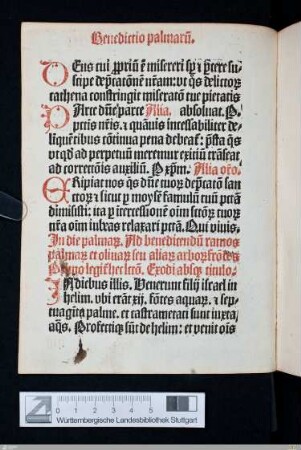 Benedictio palmarū.
DEus cui ꝓpriū ē misereri sꝑ ⁊ ꝑcere su
scipe dep̄catōnē nr̄am: vt q̄s delictoꝝ
cathena constringit miseratō tue pietatis
PArce dn̄e parce Alia. absoluat. P.
pctis nr̄is. ⁊ quāuis incessabiliter de
linquētibus cōtinua pena debeat̄: p̄sta q̄s
vt qd̄ ad perpetuū meremur exiciū trāseat
ad correctiōis auxiliū. P xp̄m. Alia or̄o.
ERipiat nos q̄s dn̄e tuoꝝ dep̄catō san
ctoꝝ ⁊ sicut ꝑ moysē famulū tuū pctā
dimisisti: ita ꝑ it̄cessionē oīm sctōꝝ tuoꝝ
nr̄a oīm iubeas relaxari pctā. Qui viuis.
In die palmaꝝ. Ad benedicendū ramos
palmaꝝ et oliuaꝝ seu aliaꝝ arboꝝ frōdes
legit̄ hec lectō. Exodi absqꝫ titulo.
IN diebus illis. Uenerunt filij israel in
helim. vbi erāt xij. fōtes aquaꝝ. ⁊ sep
tuagīta palme. et castrametati sunt iuxta
aq̄s. Profectiqꝫ sūt de helim: et venit oīs
0 1 2 3 4 5
Württembergische Landesbibliothek Stuttgart